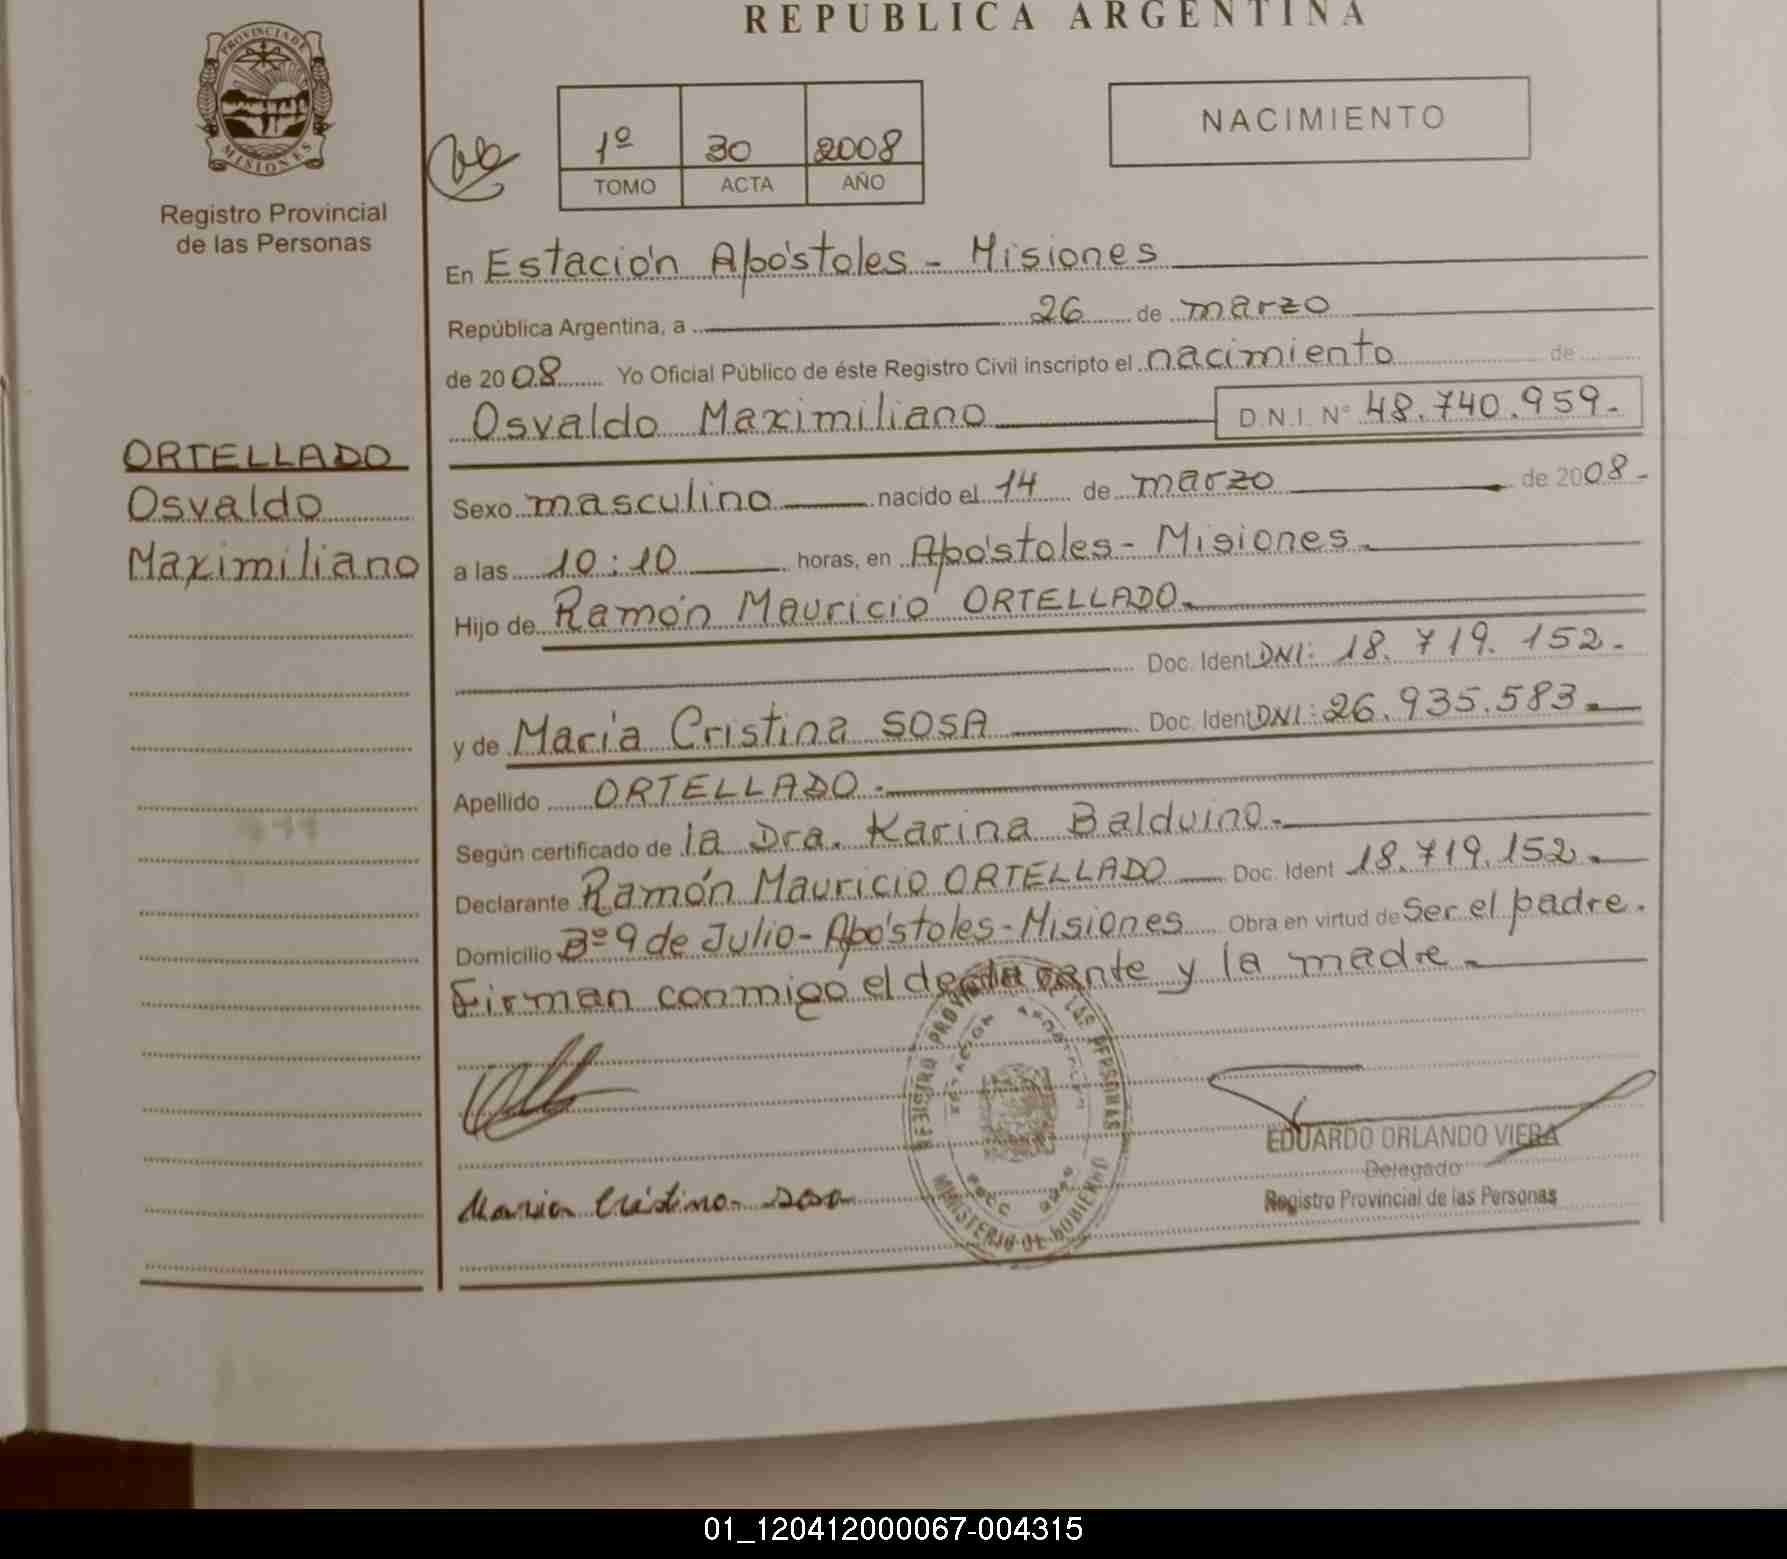 REPUBLICA ARGENTINA
PROVINCIA DE
MISIONES
Registro Provincial
de las Personas
1º 30 2008
TOMO ACTA AÑO
NACIMIENTO
En Estación Apóstoles - Misiones
República Argentina, a 26 de marzo
de 2008 Yo Oficial Público de éste Registro Civil inscripto el nacimiento de
Osvaldo Maximiliano D.N.I. Nº 48.740.959.-
ORTELLADO
Osvaldo
Maximiliano
Sexo masculino nacido el 14 de marzo de 2008-
a las 10:10 horas, en Apóstoles - Misiones.
Hijo de Ramón Mauricio ORTELLADO.
Doc. Ident DNI: 18.719.152.-
y de María Cristina SOSA Doc. Ident DNI: 26.935.583.
Apellido ORTELLADO.
Según certificado de la Dra. Karina Balduino.
Declarante Ramón Mauricio ORTELLADO Doc. Ident 18.719.152.
Domicilio Bº 9 de Julio - Apóstoles - Misiones Obra en virtud de Ser el padre.
Firman conmigo el declarante y la madre.
REGISTRO PROVINCIAL DE LAS PERSONAS
ESTACION APOSTOLES
MINISTERIO DE GOBIERNO
EDUARDO ORLANDO VIERA
Delegado
Registro Provincial de las Personas
Maria Cristina Sosa
01_120412000067-004315